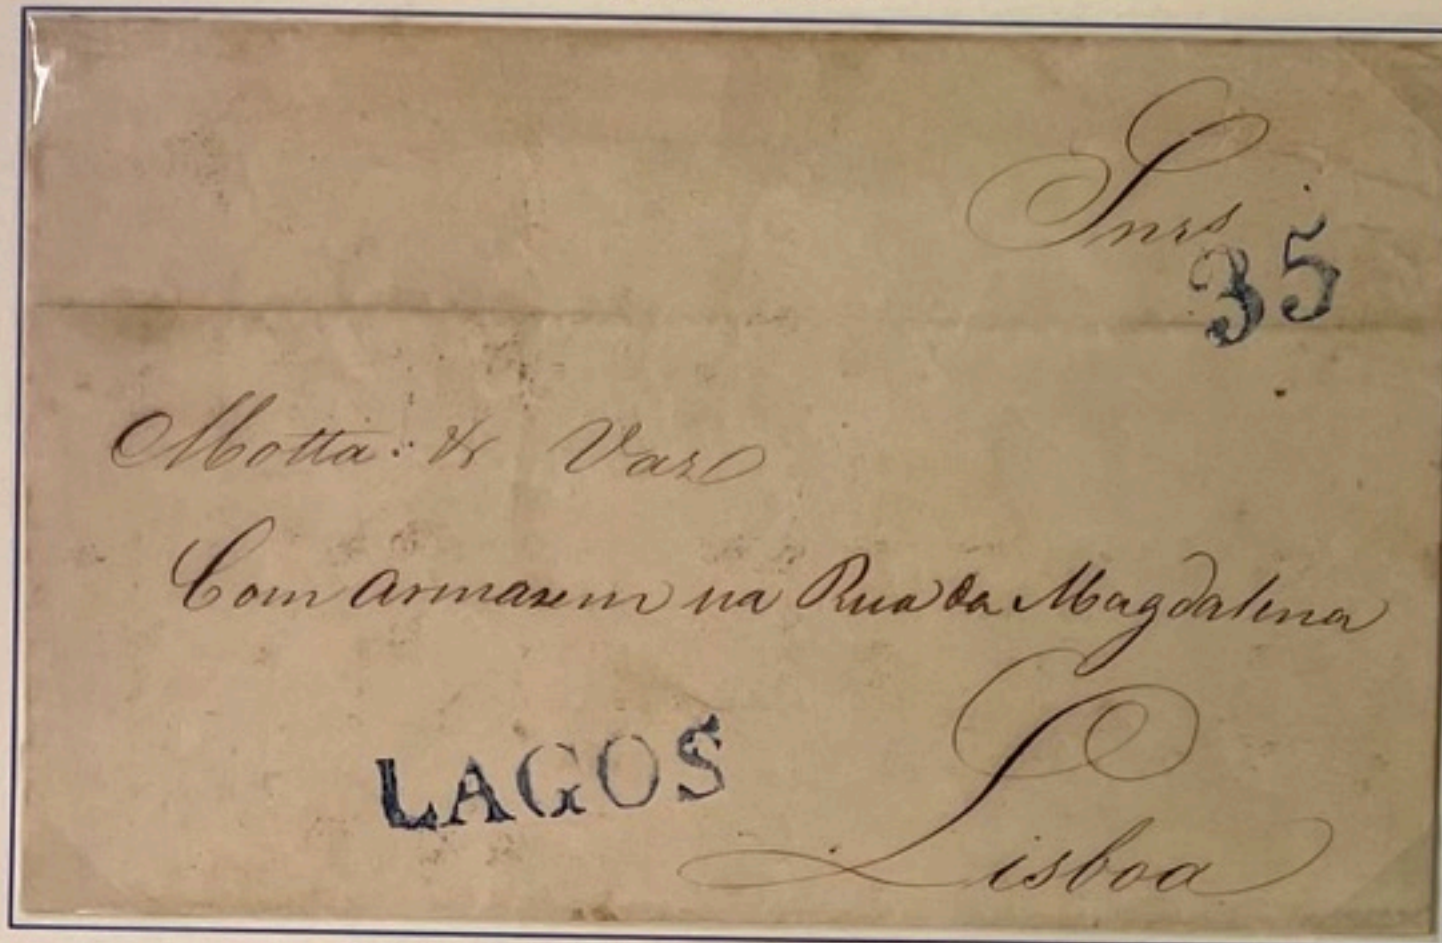 Snrs
35
Motta: & Vaz
Com armazem na Rua da Magdalena
LAGOS
Lisboa